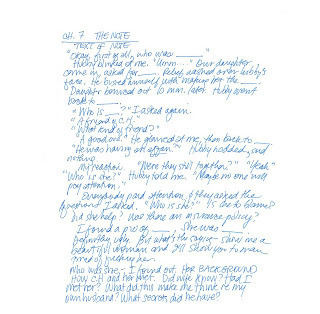 CH. 7 THE NOTE
TEXT OF NOTE
"Okay, first of all, who was ___"
Hubby blinked at me. "Umm..." Our daughter
came in, asked for ___. Relief washed over hubby's
face. He busied himself with makeup for the ___.
Daughter bounced out 10 min. later. Hubby went
back to ___.
"Who is ___?" I asked again.
"A friend of C.H."
"What kind of friend?"
"A good one." He glanced at me, then back to ___
"He was having an affair?" Hubby nodded, and
nothing
My reaction. "Were they still together?" "Yeah"
"Who is she?" Hubby told me. "Maybe no one will
pay attention."
Everybody paid attention, & they asked the
questions I asked. "Who is she?" Is she to blame?
Did she help? Was there an insurance policy?
I found a pic of ___, She was ___
Definitely ugly. But what's the saying: show me a
beautiful woman and I'll show you to man
tired of her.
Who was she - I found out. FOR BACKGROUND
How C.H. and her met. Did wife know? Had I
met her? What did this make me think re my
own husband? What secrets did he have?